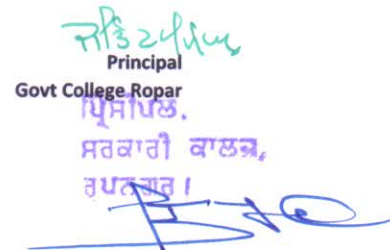 Principal
Govt College Ropar
ਪ੍ਰਿੰਸੀਪਲ.
ਸਰਕਾਰੀ ਕਾਲਜ,
ਰੂਪਨਗਰ।